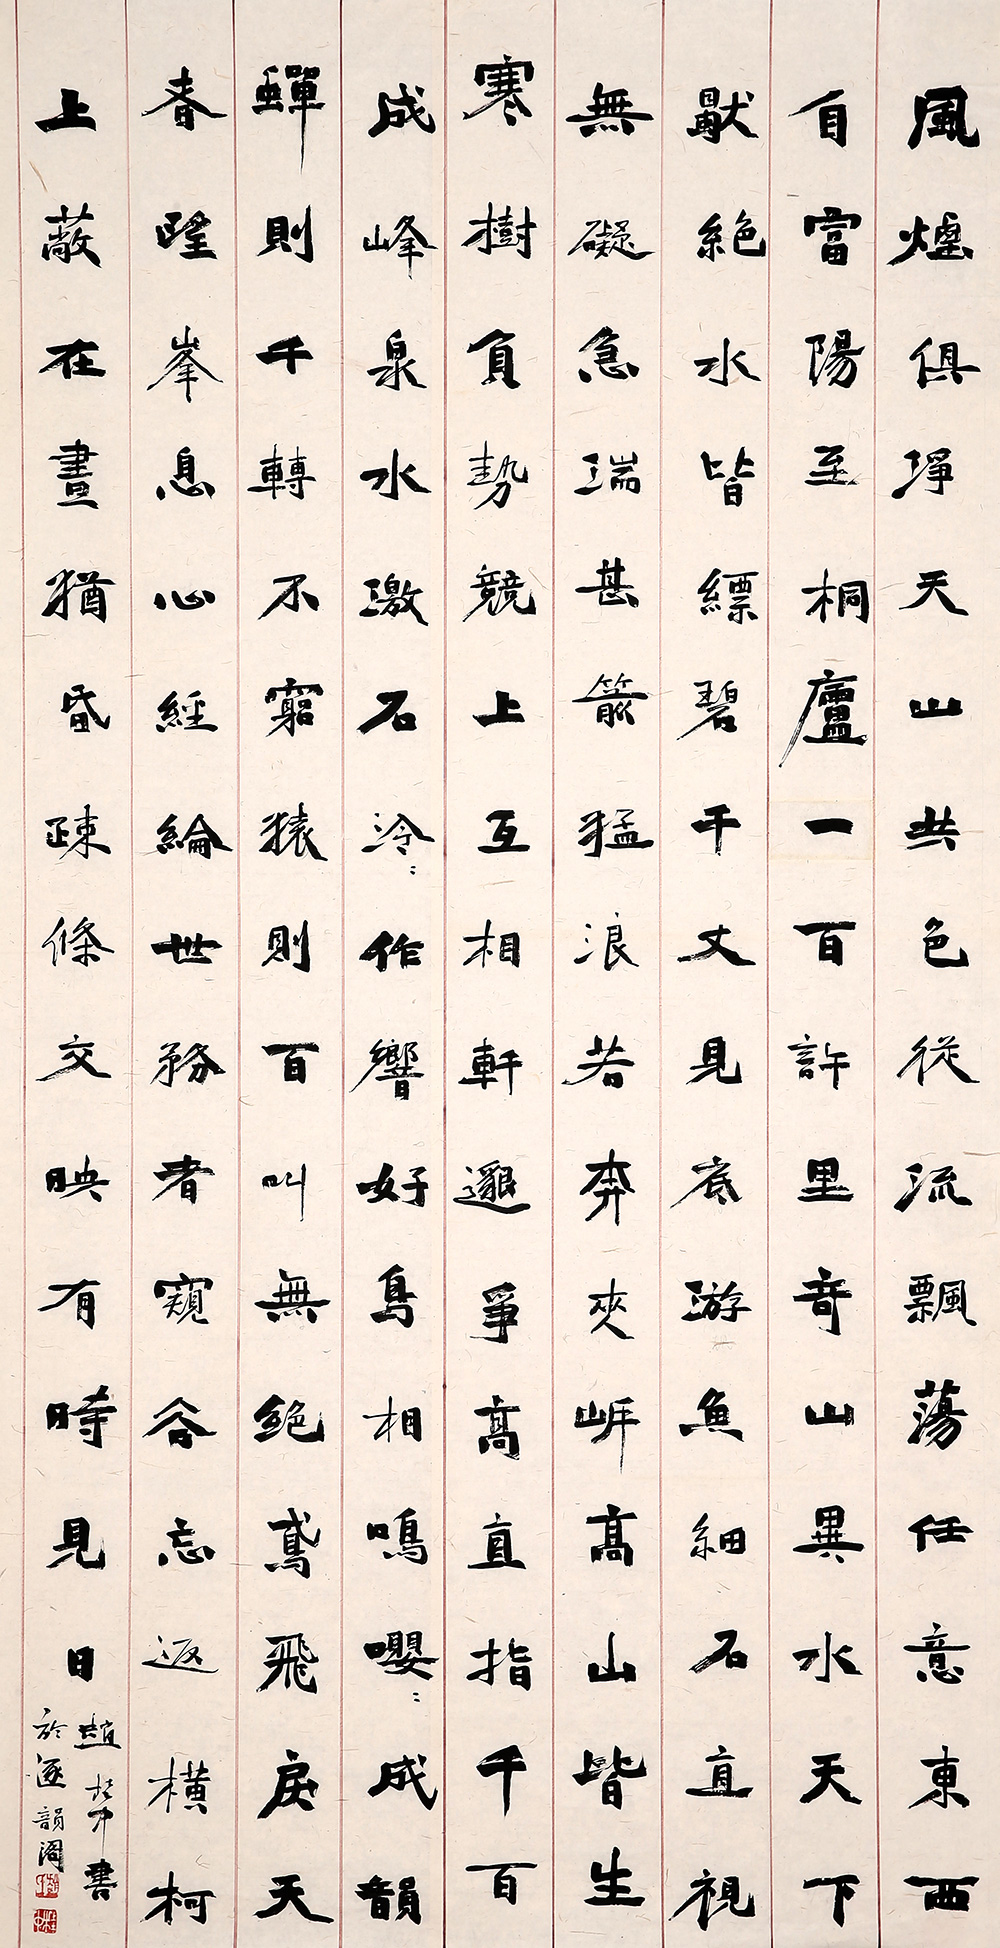 風煙俱淨天山共色從流飄蕩任意東西
自富陽至桐廬一百許里奇山異水天下
獨絕水皆縹碧千丈見底游魚細石直視
無礙急湍甚箭猛浪若奔夾岸高山皆生
寒樹負勢競上互相軒邈爭高直指千百
成峰泉水激石泠〻作響好鳥相鳴嚶〻成韻
蟬則千轉不窮猿則百叫無絕鳶飛戾天
者望峯息心經綸世務者窺谷忘返橫柯
上蔽在晝猶昏疎條交映有時見日
趙書
於逐韻閣